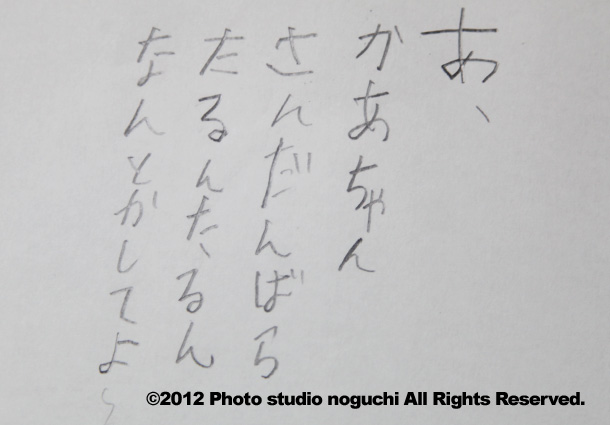 あ、
かあちゃん
さんだんばら
たるんたるん
なんとかしてよ～
©2012 Photo studio noguchi All Rights Reserved.